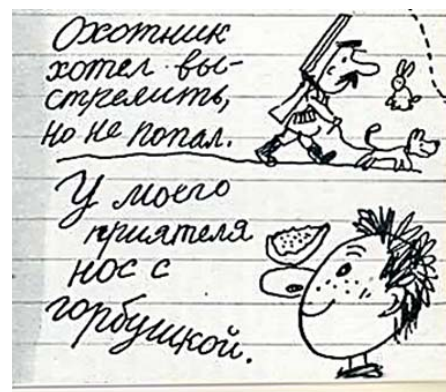 Охотник
хотел вы-
стрелить,
но не попал.
У моего
приятеля
нос с
горбушкой.